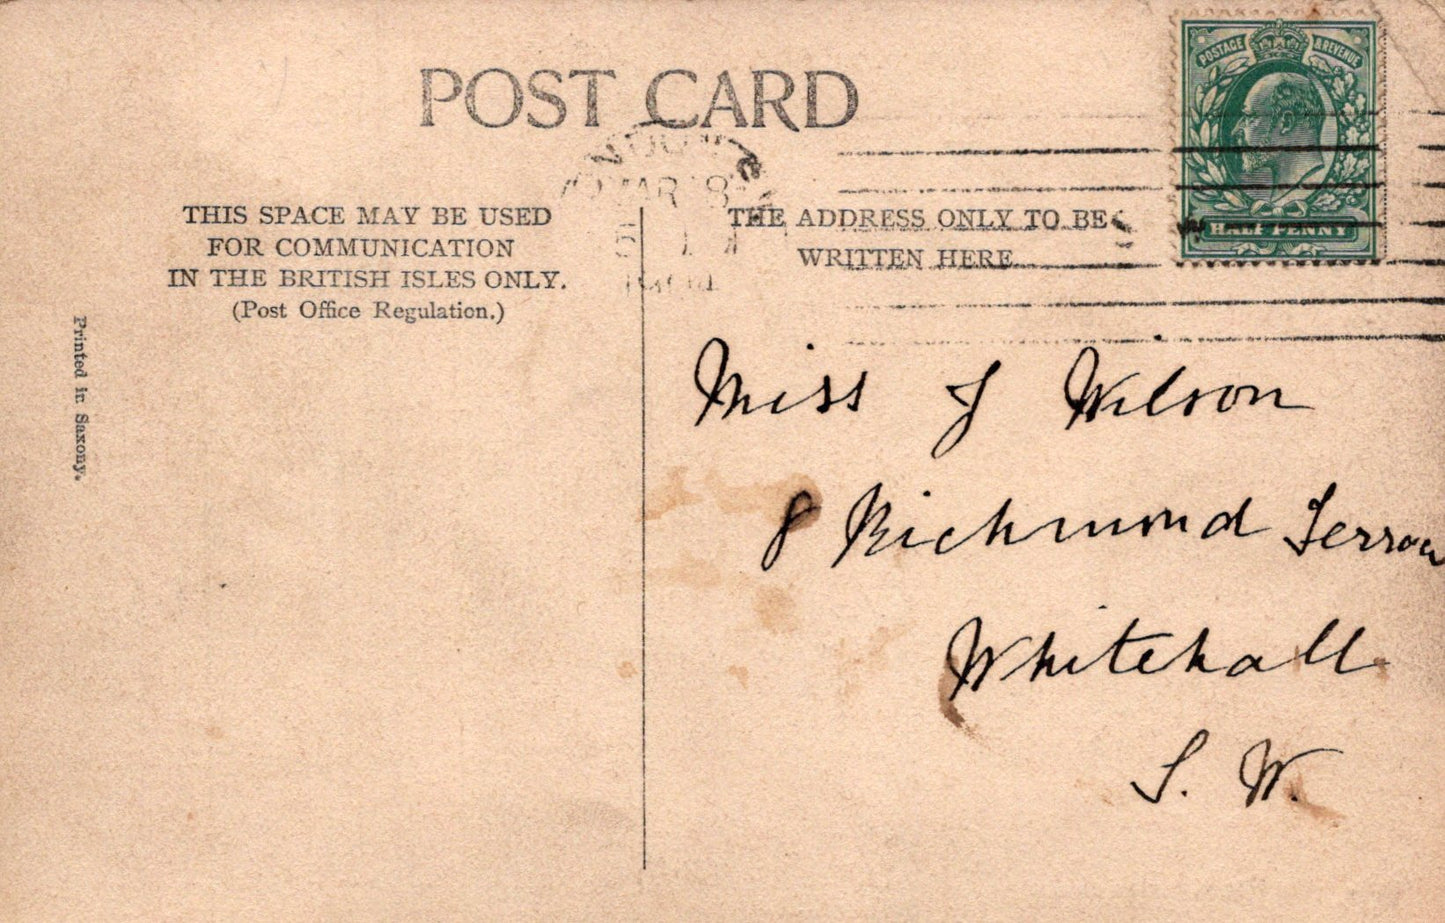 POST CARD
POSTAGE & REVENUE
HALF PENNY
MAR 8
THIS SPACE MAY BE USED
FOR COMMUNICATION
IN THE BRITISH ISLES ONLY.
(Post Office Regulation.)
THE ADDRESS ONLY TO BE
WRITTEN HERE
Printed in Saxony.
Miss J Wilson
8 Richmond Terrace
Whitehall
S. W.